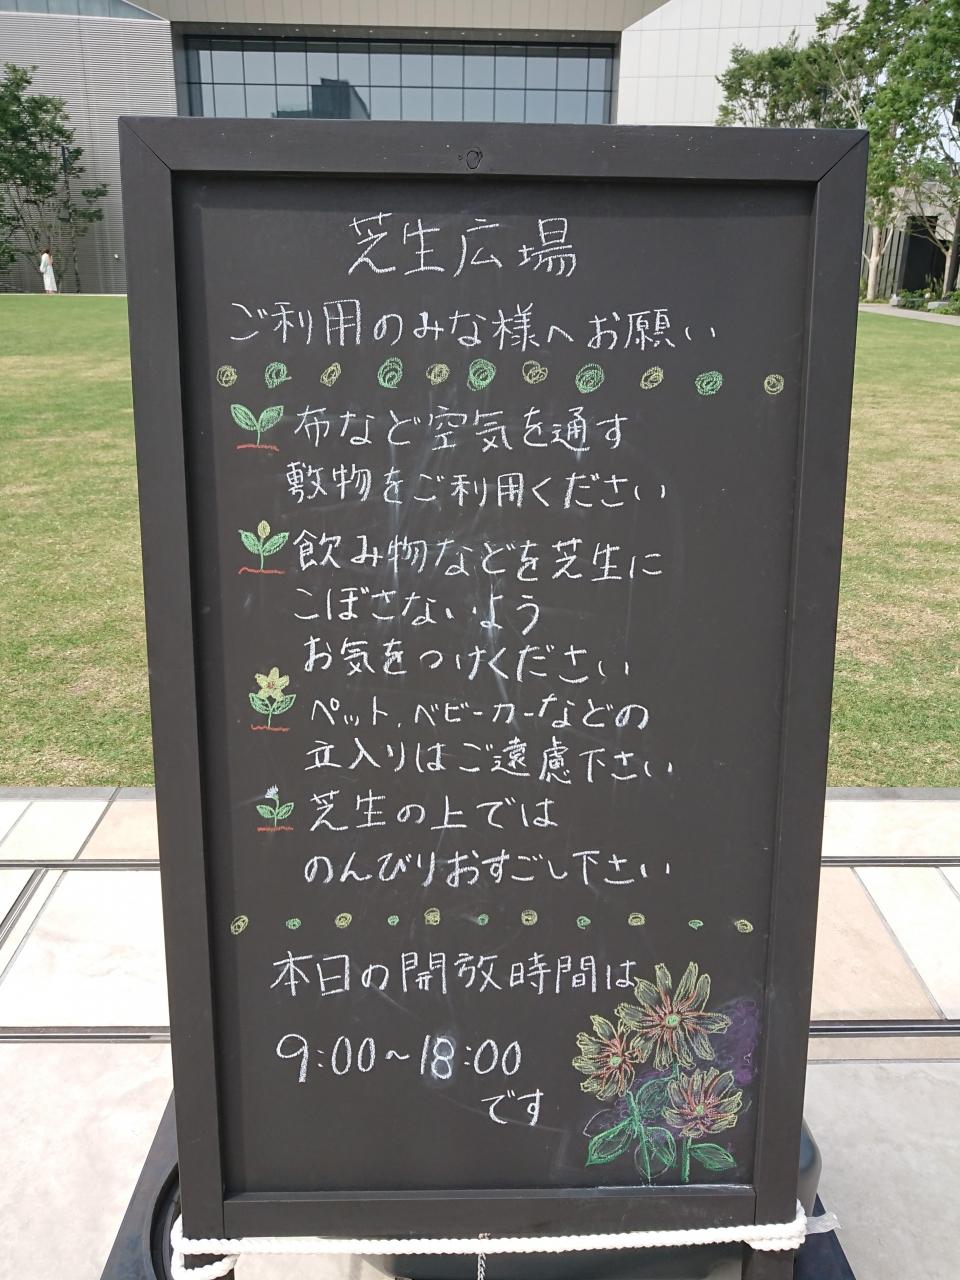 芝生広場
ご利用のみな様へお願い
布など空気を通す
敷物をご利用ください
飲み物などを芝生に
こぼさないよう
お気をつけください
ペット、ベビーカーなどの
立入りはご遠慮下さい
芝生の上では
のんびりおすごし下さい
本日の開放時間は
9:00~18:00
です